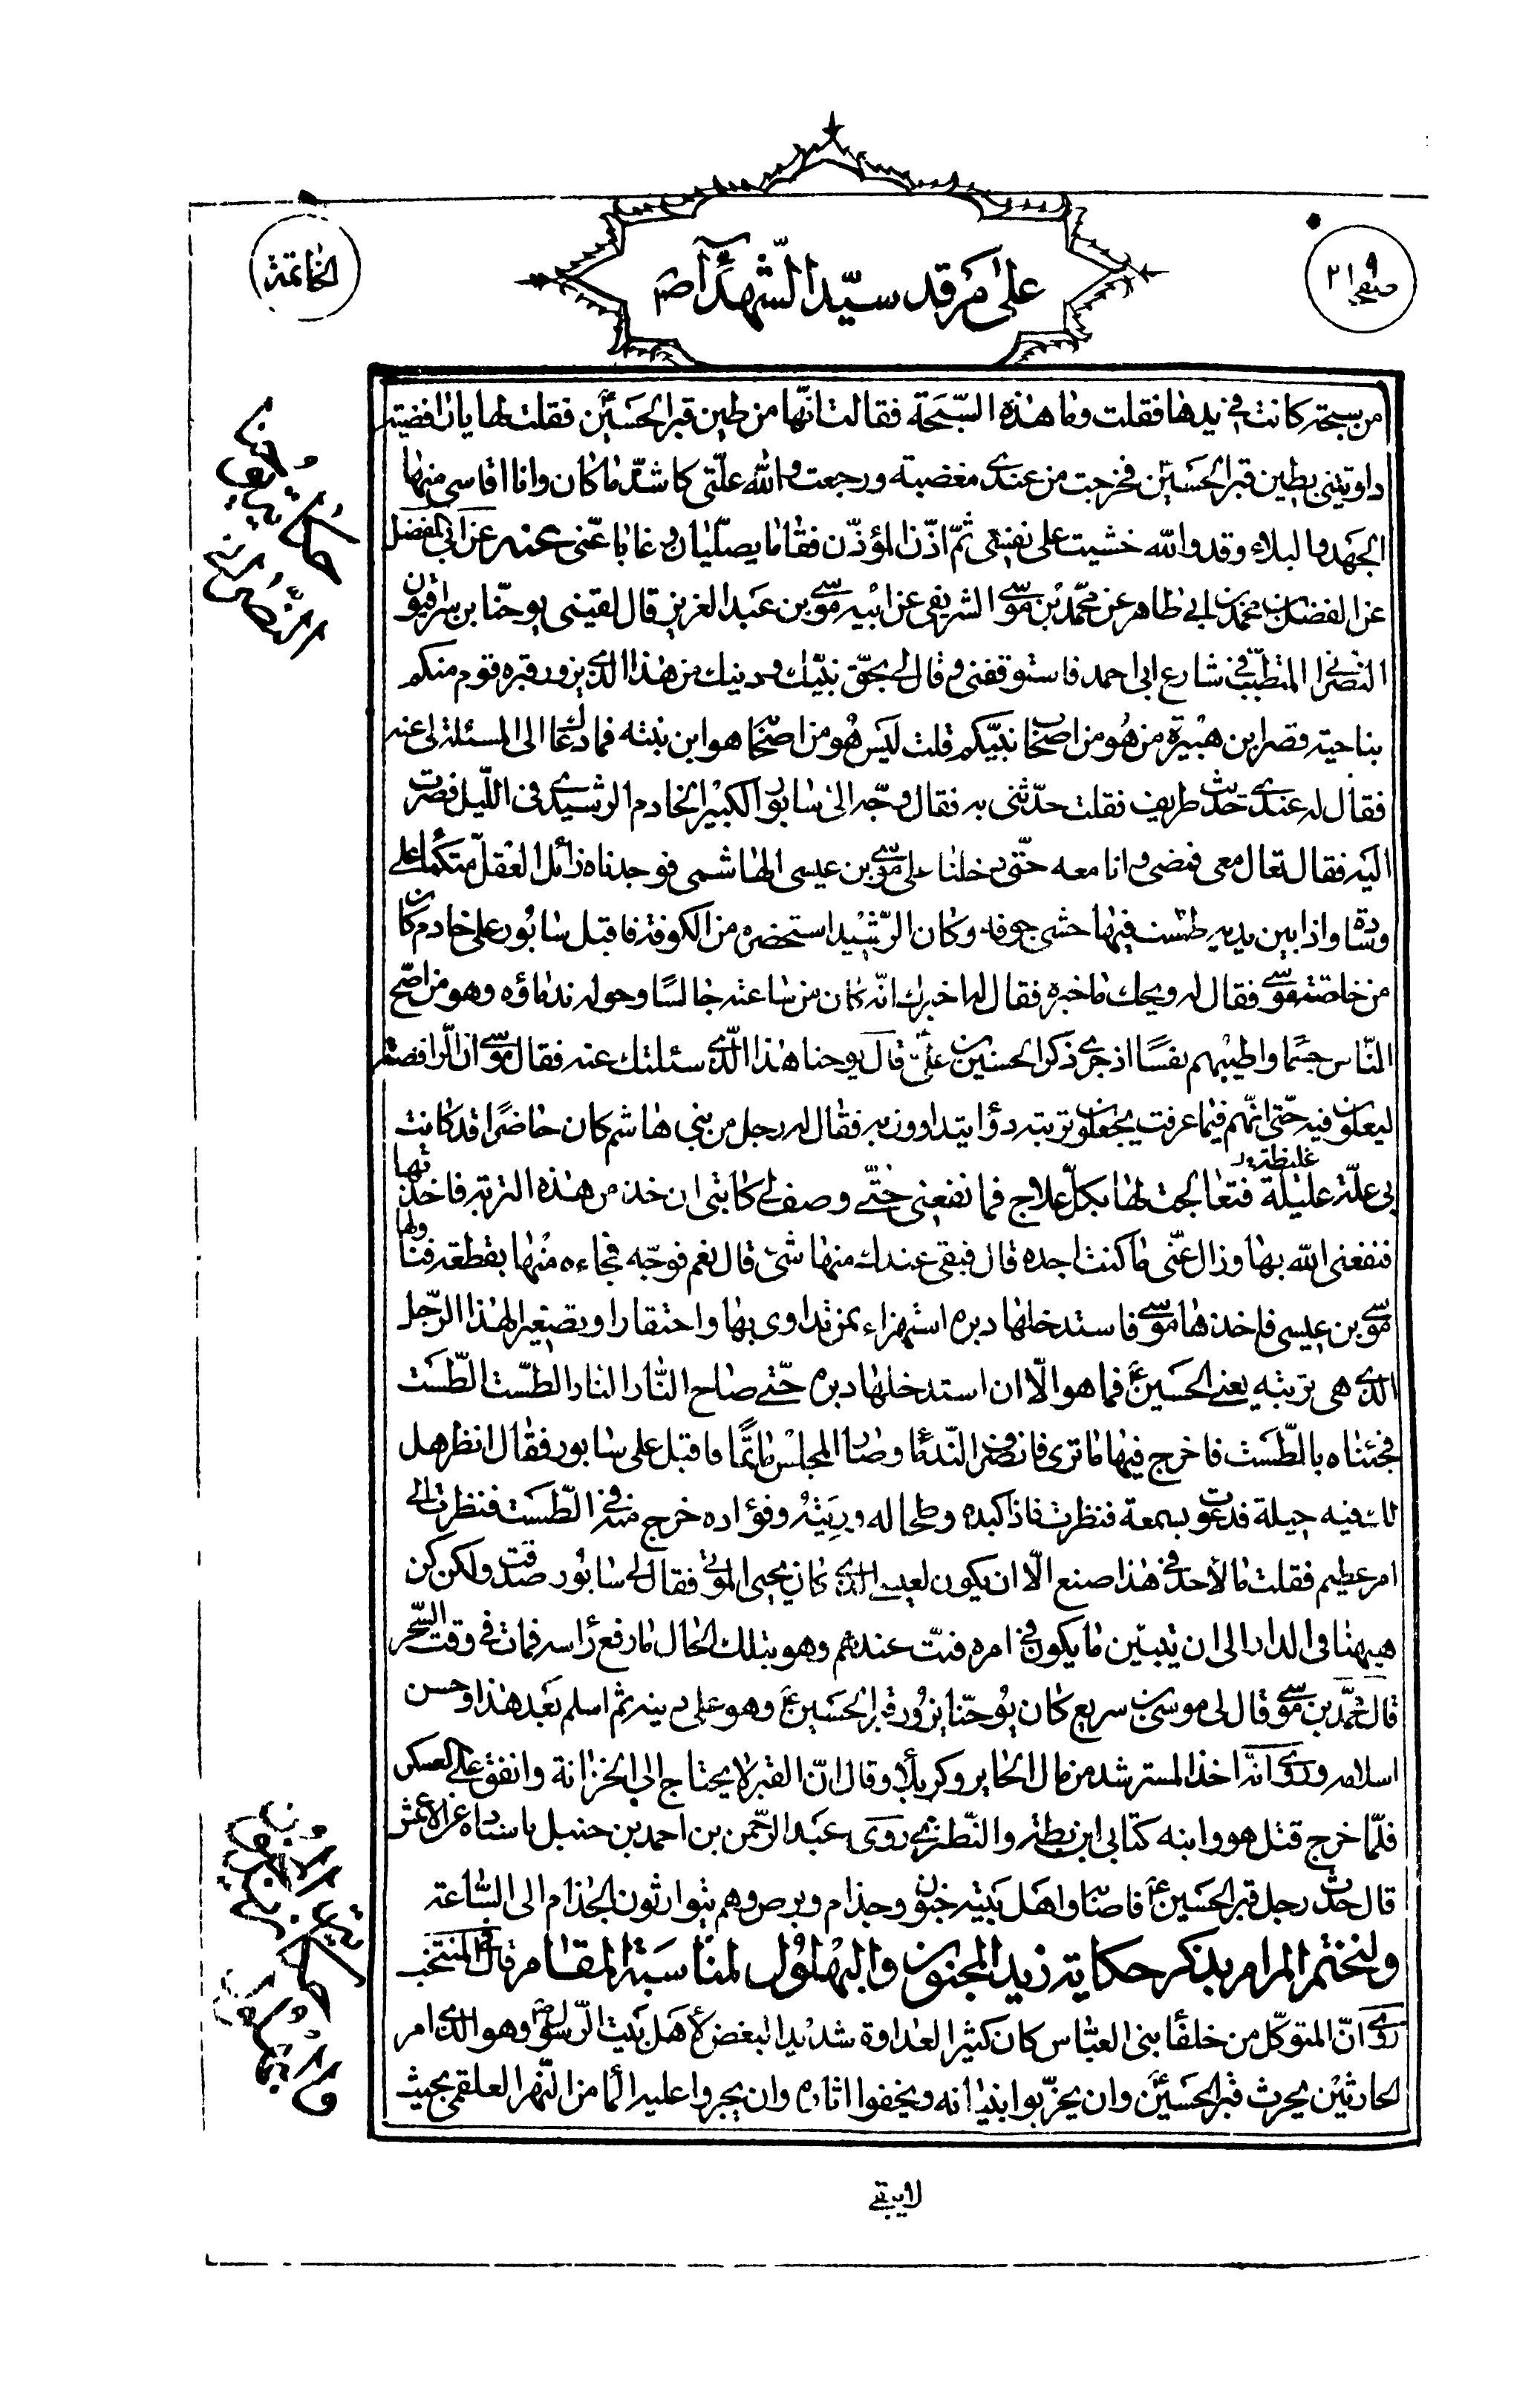 صفحه ٢١٩
على مرقد سيّد الشّهدآء ص
الخاتمة
من سبحة كانت في يدها فقلت وما هذه السّبحة فقالت انّها من طين قبر الحسينؑ فقلت لها يا رافضية
داويتني بطين قبر الحسينؑ فخرجت من عندى مغضبة ورجعت والله علّتى كاشدّ ما كان وانا اقاسى منها
الجهد والبلاء وقد والله خشيت على نفسى ثمّ اذّن المؤذّن فقاما يصلّيان وغابا عنّى عنه عن ابى المفضل
عن الفضل بن محمد بن ابى طاهر عن محمّد بن موسى الشريفى عن ابيه موسى بن عبد العزيز قال لقيني يوحنّا بن سراقيون
النصرانى المتطبّب فى شارع ابى احمد فاستوقفنى وقال لى بحقّ نبيّك ودينك من هذا الذى يزور قبره قوم منكم
بناحية قصر ابن هبيرة من هو من اصحاب نبيّكم قلت ليس هو من اصحابه هو ابن بنته فما دعاك الى المسئلة لى عنه
فقال له عندى حديث طريف فقلت حدّثنى به فقال وجّه الىّ سابور الكبير الخادم الرشيدى فى اللّيل فصرت
اليه فقال تعال معى فمضى وانا معه حتّى دخلنا على موسى بن عيسى الهاشمى فوجدناه زائل العقل متكئا على
وسادة واذا بين يديه طست فيها حشى جوفه وكان الرّشيد استحضره من الكوفة فاقبل سابور على خادم كان
من خاصّة موسى فقال له ويحك ما خبره فقال له اخبرك انّه كان من ساعته جالسًا وحوله ندماؤه وهو من اصحّ
النّاس جسمًا واطيبهم نفسًا اذ جرى ذكر الحسين بن علىؑ قال يوحنا هذا الّذى سئلتك عنه فقال موسى ان الرافضة
ليغلون فيه حتّى انّهم فيما عرفت يجعلون تربته دواء يتداوون به فقال له رجل من بني هاشم كان حاضرًا قد كانت
غليظة
بى علّة عليلة فتعالجت لها بكلّ علاج فما نفعنى حتّى وصف لى كاتبى ان خذ من هذه التربة فاخذتها
فنفعنى الله بها وزال عنّى ما كنت اجده قال فبقى عندك منها شئ قال نعم فوجّه فجاءه منها بقطعة فناولها
موسى بن عيسى فاخذها موسى فاستدخلها دبره استهزاء بمن تداوى بها واحتقارا وتصغيرا لهذا الرّجل
الذى هى تربته يعنى الحسينؑ فما هو الّا ان استدخلها دبره حتّى صاح النّار النار الطّست الطّست
فجئناه بالطّست فاخرج فيها ما ترى فانصرف النّدماء وصار المجلس ماتمًا فاقبل على سابور فقال انظر هل
لك فيه حيلة فدعوت بشمعة فنظرت فاذا كبده وطحاله وريته وفؤاده خرج منه فى الطّست فنظرت الى
امر عظيم فقلت ما لأحد فى هذا صنع الّا ان يكون لعيسى الذى كان يحيى الموتى فقال لى سابور صدقت ولكن كن
هيهنا فى الدار الى ان يتبيّن ما يكون فى امره فبتّ عندهم وهو بتلك الحال ما رفع راسه فمات فى وقت السّحر
قال محمّد بن موسى قال لى موسى بن سريع كان يوحنّا يزور قبر الحسينؑ وهو على دينه ثم اسلم بعد هذا وحسن
اسلامه وروى انّه اخذ المسترشد من مال الحاير وكربلا وقال انّ القبر لا يحتاج الى الخزانة وانفق على العسكر
فلمّا خرج قتل هو وابنه كتابى ابن بطة والنّطنزى روى عبد الرّحمن بن احمد بن حنبل باسناده عن الاعمش
قال حدث رجل قبر الحسينؑ فاصابه واهل بيته جنون وجذام وبرص وهم يتوارثون الجذام الى السّاعة
ولنختم المرام بذكر حكاية زيد المجنون والبهلول لمناسبة المقام قال فى المنتخب
روى انّ المتوكّل من خلفآء بنى العبّاس كان كثير العداوة شديد البغض لأهل بيت الرّسول ص وهو الذى امر
الحارثين بحرث قبر الحسينؑ وان يخرّبوا بنيانه ويخفوا اثاره وان يجروا عليه المآء من النّهر العلقمى بحيث
لا يبقى